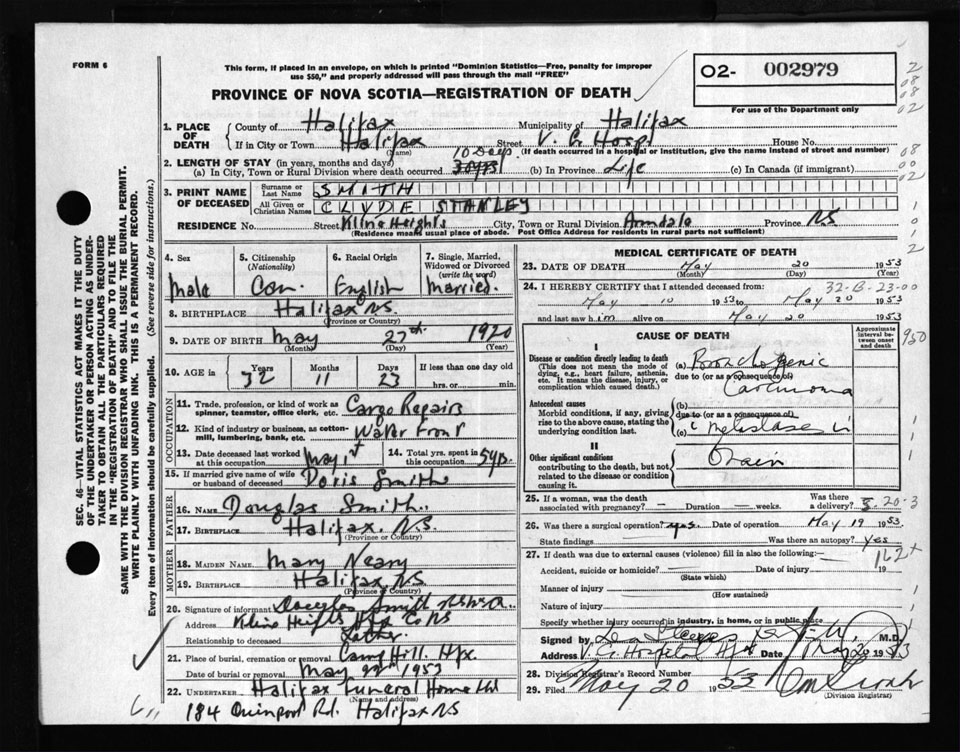 FORM 6
This form, if placed in an envelope, on which is printed "Dominion Statistics—Free, penalty for improper
use $50," and properly addressed will pass through the mail "FREE"
PROVINCE OF NOVA SCOTIA—REGISTRATION OF DEATH
O2- 002979
For use of the Department only
1. PLACE OF DEATH
County of Halifax Municipality of Halifax
If in City or Town Halifax Street V. G. Hospl House No.
(Name) (If death occurred in a hospital or institution, give the name instead of street and number)
2. LENGTH OF STAY (in years, months and days) 10 Days
(a) In City, Town or Rural Division where death occurred (b) In Province Life (c) In Canada (if immigrant)
3. PRINT NAME OF DECEASED
Surname or Last Name SMITH
All Given or Christian Names CLYDE STANLEY
RESIDENCE No. Street Kline Heights City, Town or Rural Division Armdale Province NS
(Residence means usual place of abode. Post Office Address for residents in rural parts not sufficient)
4. Sex
Male
5. Citizenship
(Nationality)
Can.
6. Racial Origin
English
7. Single, Married,
Widowed or Divorced
(write the word)
Married.
8. BIRTHPLACE Halifax NS.
(Province or Country)
9. DATE OF BIRTH May 27th 1920
(Month) (Day) (Year)
10. AGE in Years Months Days If less than one day old
32 11 23 hrs. or min.
OCCUPATION
11. Trade, profession, or kind of work as
spinner, teamster, office clerk, etc. Cargo Repairs
12. Kind of industry or business, as cotton-
mill, lumbering, bank, etc. Water Front
13. Date deceased last worked
at this occupation May 1st
14. Total yrs. spent in
this occupation 5 yrs.
15. If married give name of wife
or husband of deceased Doris Smith
FATHER
16. Name Douglas Smith.
17. Birthplace Halifax. N.S.
(Province or Country)
MOTHER
18. Maiden Name Mary Neary
19. Birthplace Halifax NS
(Province or Country)
20. Signature of informant Douglas Smith
Address Kline Heights Hfx Co NS
Relationship to deceased Father.
21. Place of burial, cremation or removal Camp Hill. Hfx
Date of burial or removal May 22nd 1953
22. Undertaker Halifax Funeral Home Ltd
(Name and address)
184 Quinpool Rd. Halifax NS
MEDICAL CERTIFICATE OF DEATH
23. DATE OF DEATH May 20 1953
(Month) (Day) (Year)
24. I HEREBY CERTIFY that I attended deceased from: 32-B-23-00
May 10 1953 to May 20 1953
and last saw him alive on May 20 1953
CAUSE OF DEATH
Approximate
interval between
onset
and death
I
Disease or condition directly leading to death
(This does not mean the mode of
dying, e.g., heart failure, asthenia,
etc. It means the disease, injury, or
complication which caused death.)
(a) Bronchogenic
due to (or as a consequence of)
Carcinoma
Antecedent causes
Morbid conditions, if any, giving
rise to the above cause, stating the
underlying condition last.
(b)
due to (or as a consequence of)
(c) c metastases in
Brain
II
Other significant conditions
contributing to the death, but not
related to the disease or condition
causing it.
25. If a woman, was the death
associated with pregnancy? — Duration — weeks. Was there
a delivery?
26. Was there a surgical operation? yes. Date of operation May 19 1953.
State findings Was there an autopsy? Yes
27. If death was due to external causes (violence) fill in also the following:—
Accident, suicide or homicide? Date of injury 19
(State which)
Manner of injury
(How sustained)
Nature of injury
Specify whether injury occurred in industry, in home, or in public place
Signed by M.D.
Address V. G. Hospital Hfx Date May 20 1953
28. Division Registrar's Record Number
29. Filed May 20 1953
(Division Registrar)
SEC. 46—VITAL STATISTICS ACT MAKES IT THE DUTY
OF THE UNDERTAKER OR PERSON ACTING AS UNDER-
TAKER TO OBTAIN ALL THE PARTICULARS REQUIRED
IN THE "REGISTRATION OF DEATH" AND TO FILE THE
SAME WITH THE DIVISION REGISTRAR WHO SHALL ISSUE THE BURIAL PERMIT.
WRITE PLAINLY WITH UNFADING INK. THIS IS A PERMANENT RECORD.
Every item of information should be carefully supplied. (See reverse side for instructions.)